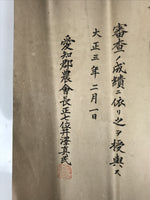 審查ノ成績ニ依リ之ヲ授與ス
大正三年二月一日
愛知郡農會長正七位井澤真貳